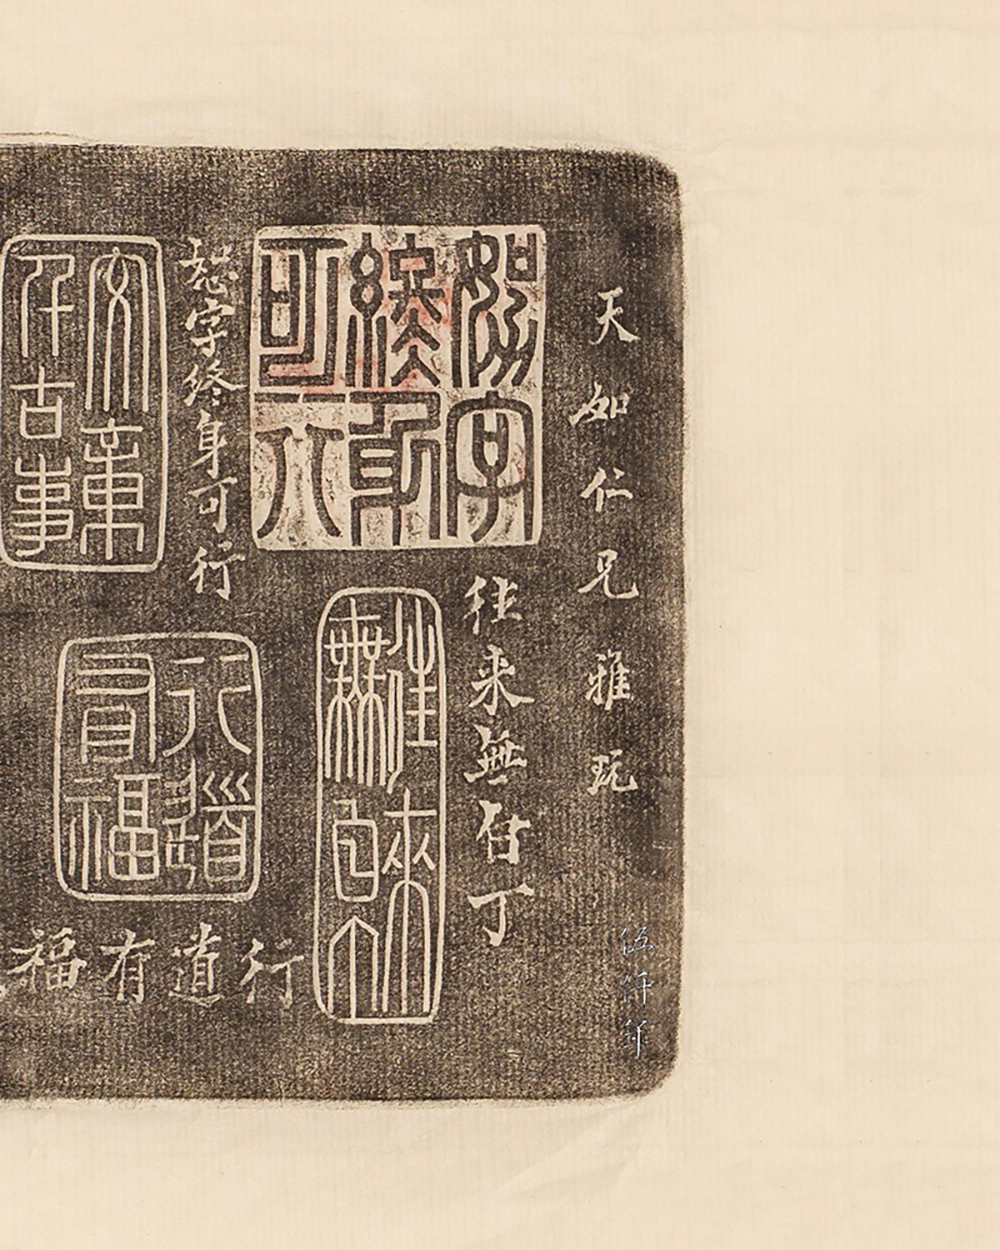 天如仁兄雅玩
恕字
終身
可行
往來無白丁
往來
無白丁
恕字終身可行
行道
有福
行道有福
文章
千古事
伍仟年